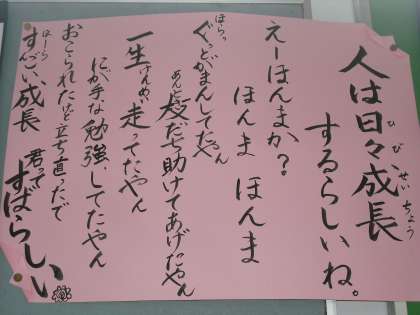 人は日々成長
ひび せいちょう
するらしいね。
えーほんまか?
ほんま ほんま
ほらっ
ぐっとがまんしてたやん
あんとき友だち助けてあげたやん
一生けんめい走ってたやん
にが手な勉強、してたやん
おこられたけど立ち直ったで
ほーら
すんごい、成長 君って
すばらしい